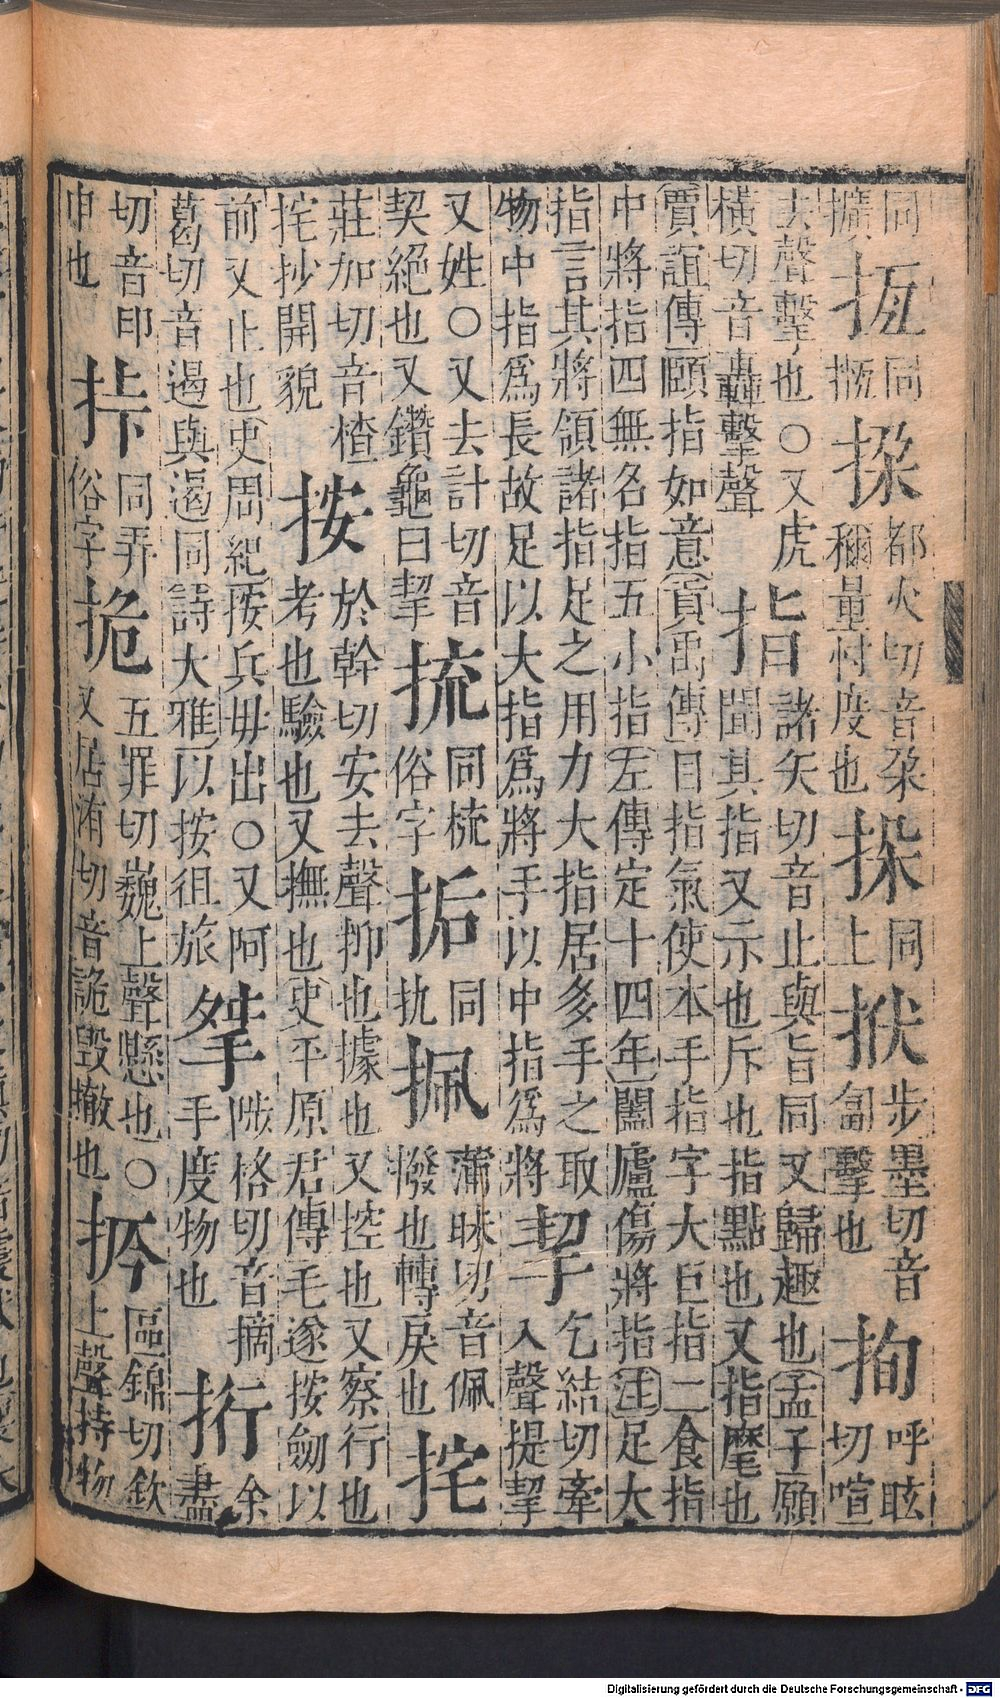 同
擴
同
挅都火切音朶
稱量忖度也
挆同
上
步墨切音
匐擊也
呼眩
切喧
去聲擊也○又虎
橫切音轟轟擊聲
指諸矢切音止與旨同又歸趣也孟子願
聞其指又示也斥也指點也又指麾也
賈誼傳頤指如意貢禹傳目指氣使本手指字大巨指二食指
中將指四無名指五小指左傳定十四年闔廬傷將指注足大
指言其將領諸指足之用力大指居多手之取
物中指爲長故足以大指爲將手以中指爲將三二
挈乞結切牽
入聲提挈
又姓○又去計切音
契絕也又鑽龜曰挈
同梳
俗字
同
扏
蒲昧切音佩
撥也轉戾也
挓
莊加切音楂
挓抄開貌
按於幹切安去聲抑也據也又控也又察行也
考也驗也又撫也史平原君傳毛遂按劒以
前又止也史周紀按兵毋出○又阿
葛切音遏與遏同詩大雅以按徂旅
陟格切音摘
手度物也
余
盡
切音印
申也
挊同弄
俗字
五罪切巍上聲懸也○
又居洧切音詭毀撤也
區錦切欽
上聲持物
Digitalisierung gefördert durch die Deutsche Forschungsgemeinschaft - DFG